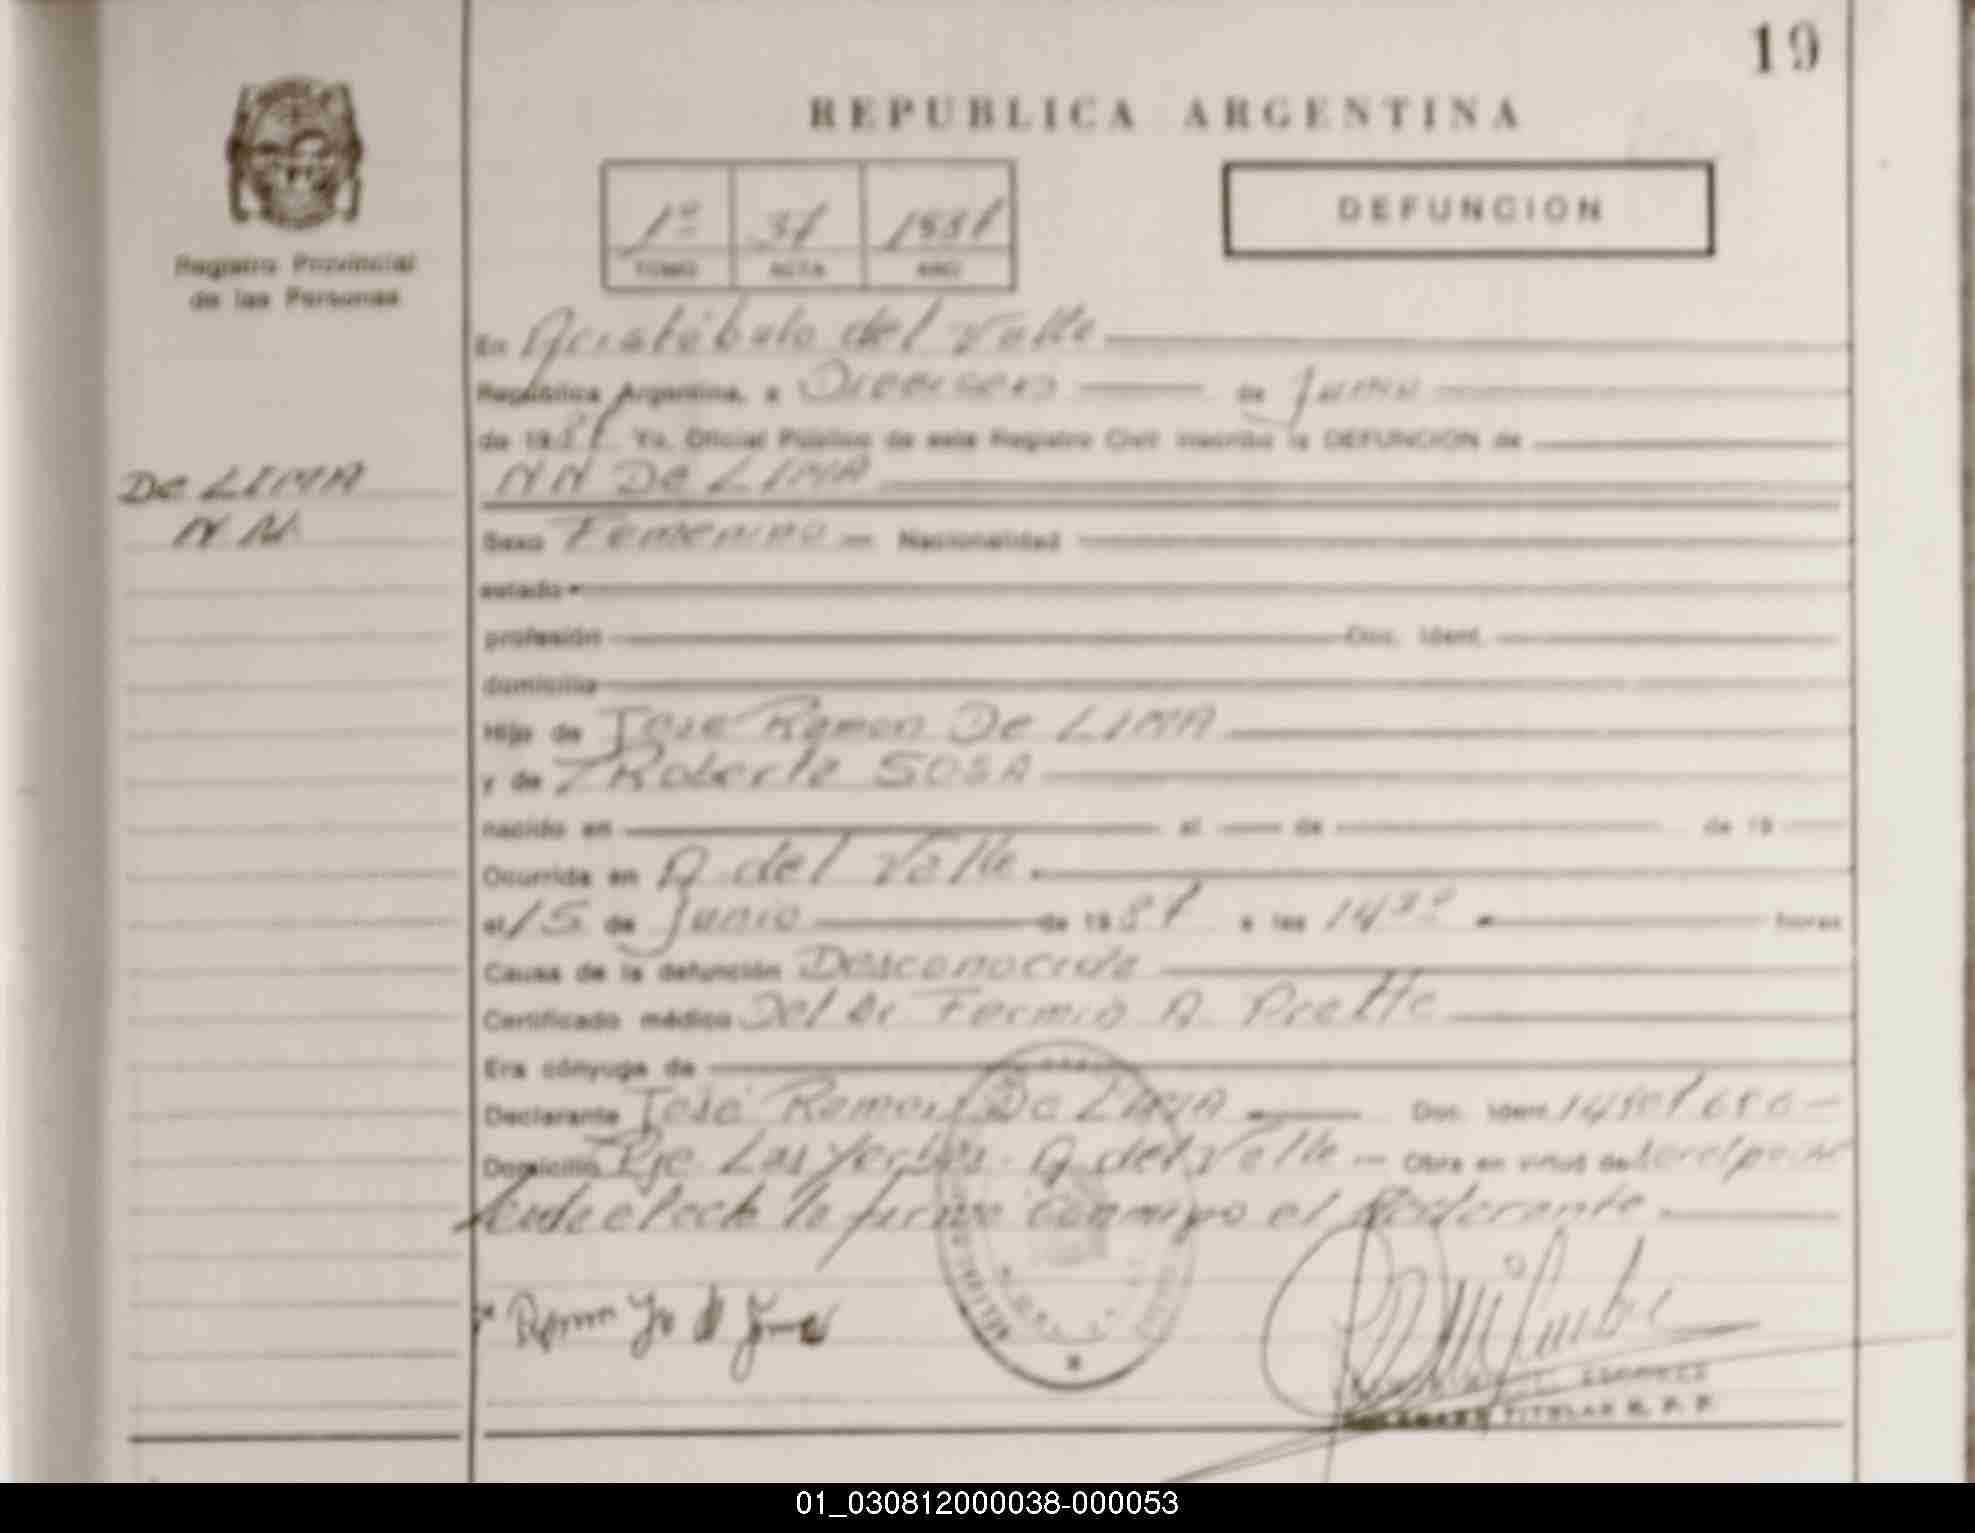 19
REPUBLICA ARGENTINA
1º 37 1987
TOMO ACTA AÑO
DEFUNCION
Registro Provincial
de las Personas
De LIMA
N.N.
En Aristóbulo del Valle
República Argentina, a Dieciseis de Junio
de 1987 Yo, Oficial Público de este Registro Civil inscribo la DEFUNCION de
NN De LIMA
Sexo Femenino Nacionalidad
estado
profesión Doc. Ident.
domicilio
Hijo de José Ramon De LIMA
y de Roberta SOSA
nacido en el de de 19
Ocurrida en A. del Valle
el 15 de Junio de 1987 a las 14 horas
Causa de la defunción Desconocida
Certificado médico Del Dr Fermin A.
Era cónyuge de
Declarante José Ramon De LIMA Doc. Ident.
Domicilio Pje. Las Yerbas. A del Valle Obra en virtud de
lo firma conmigo el
TITULAR R. P. P.
01_030812000038-000053